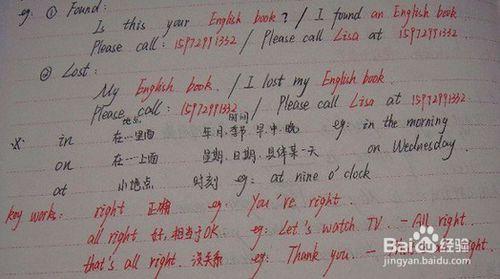 eg: ① Found:
Is this your English book? / I found an English book.
Please call: 15972991332 / Please call Lisa at 15972991332.
② Lost:
My English book. / I lost my English book.
Please call: 15972991332 / Please call Lisa at 15972991332
地点 时间
※ in 在…里面 年.月.季节.早.中.晚 eg: in the morning
on 在…上面 星期.日期.具体某一天 on Wednesday.
at 小地点 时刻 eg: at nine o'clock
key works: right 正确 eg: You're right.
all right 好,相当于OK. eg: Let's watch TV. - All right.
that's all right 没关系 eg: Thank you. - right
Bai度经验
jingyan.baidu.com